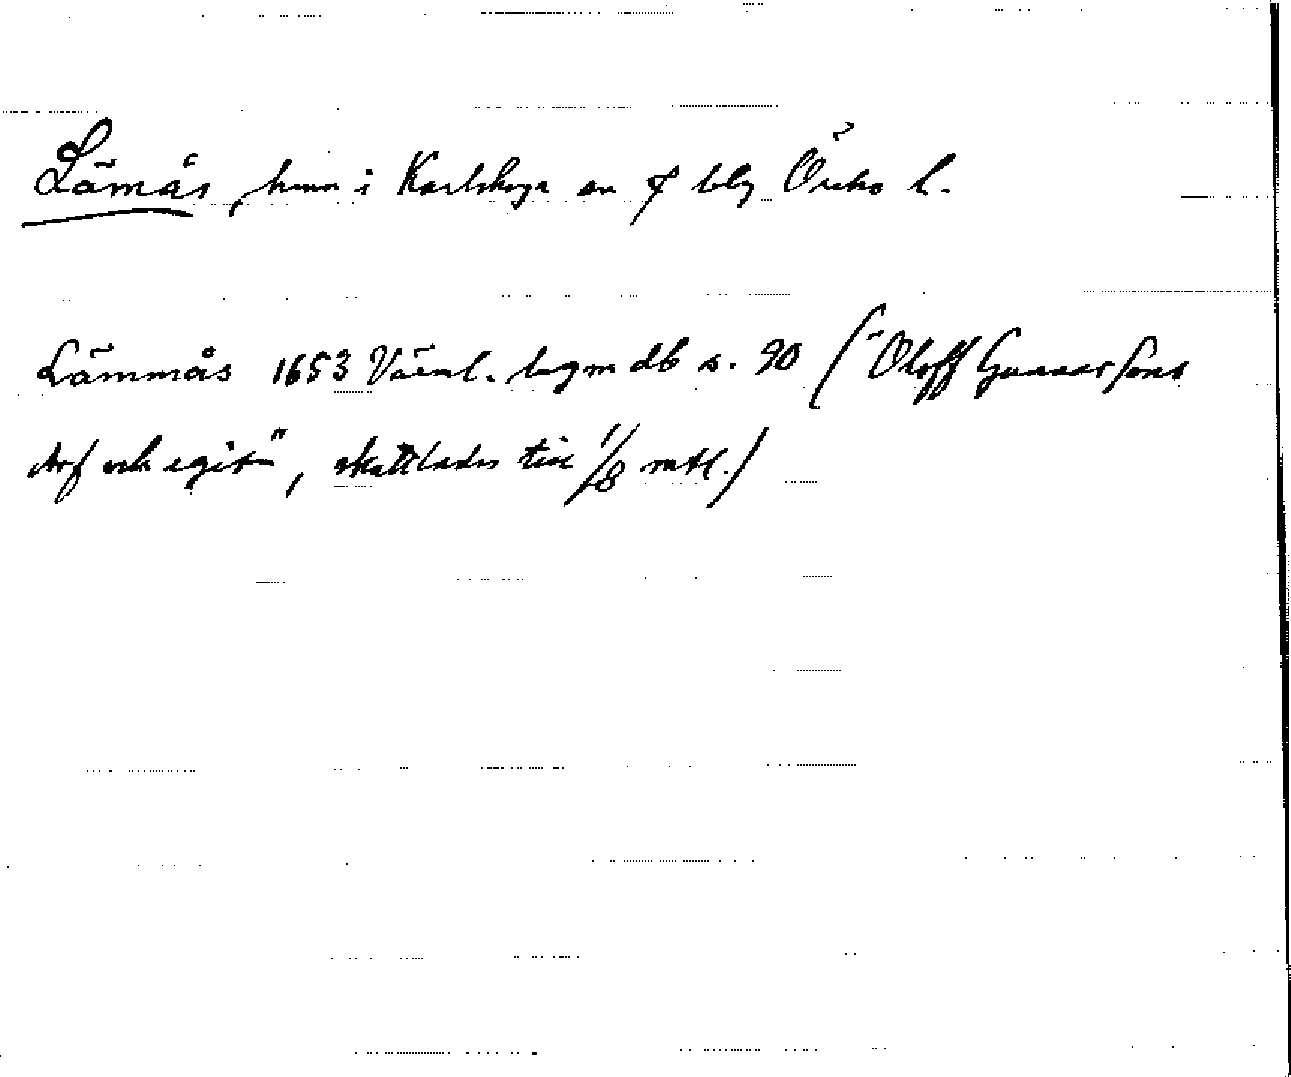 Lämås, hmn i Karlskoga sn f blg Örebro l.
Lämmås 1653 Värml. lagm db s. 90 ("Oloff Gunnarsons
Arf och egit", skattlades till 1/8 mtl.)